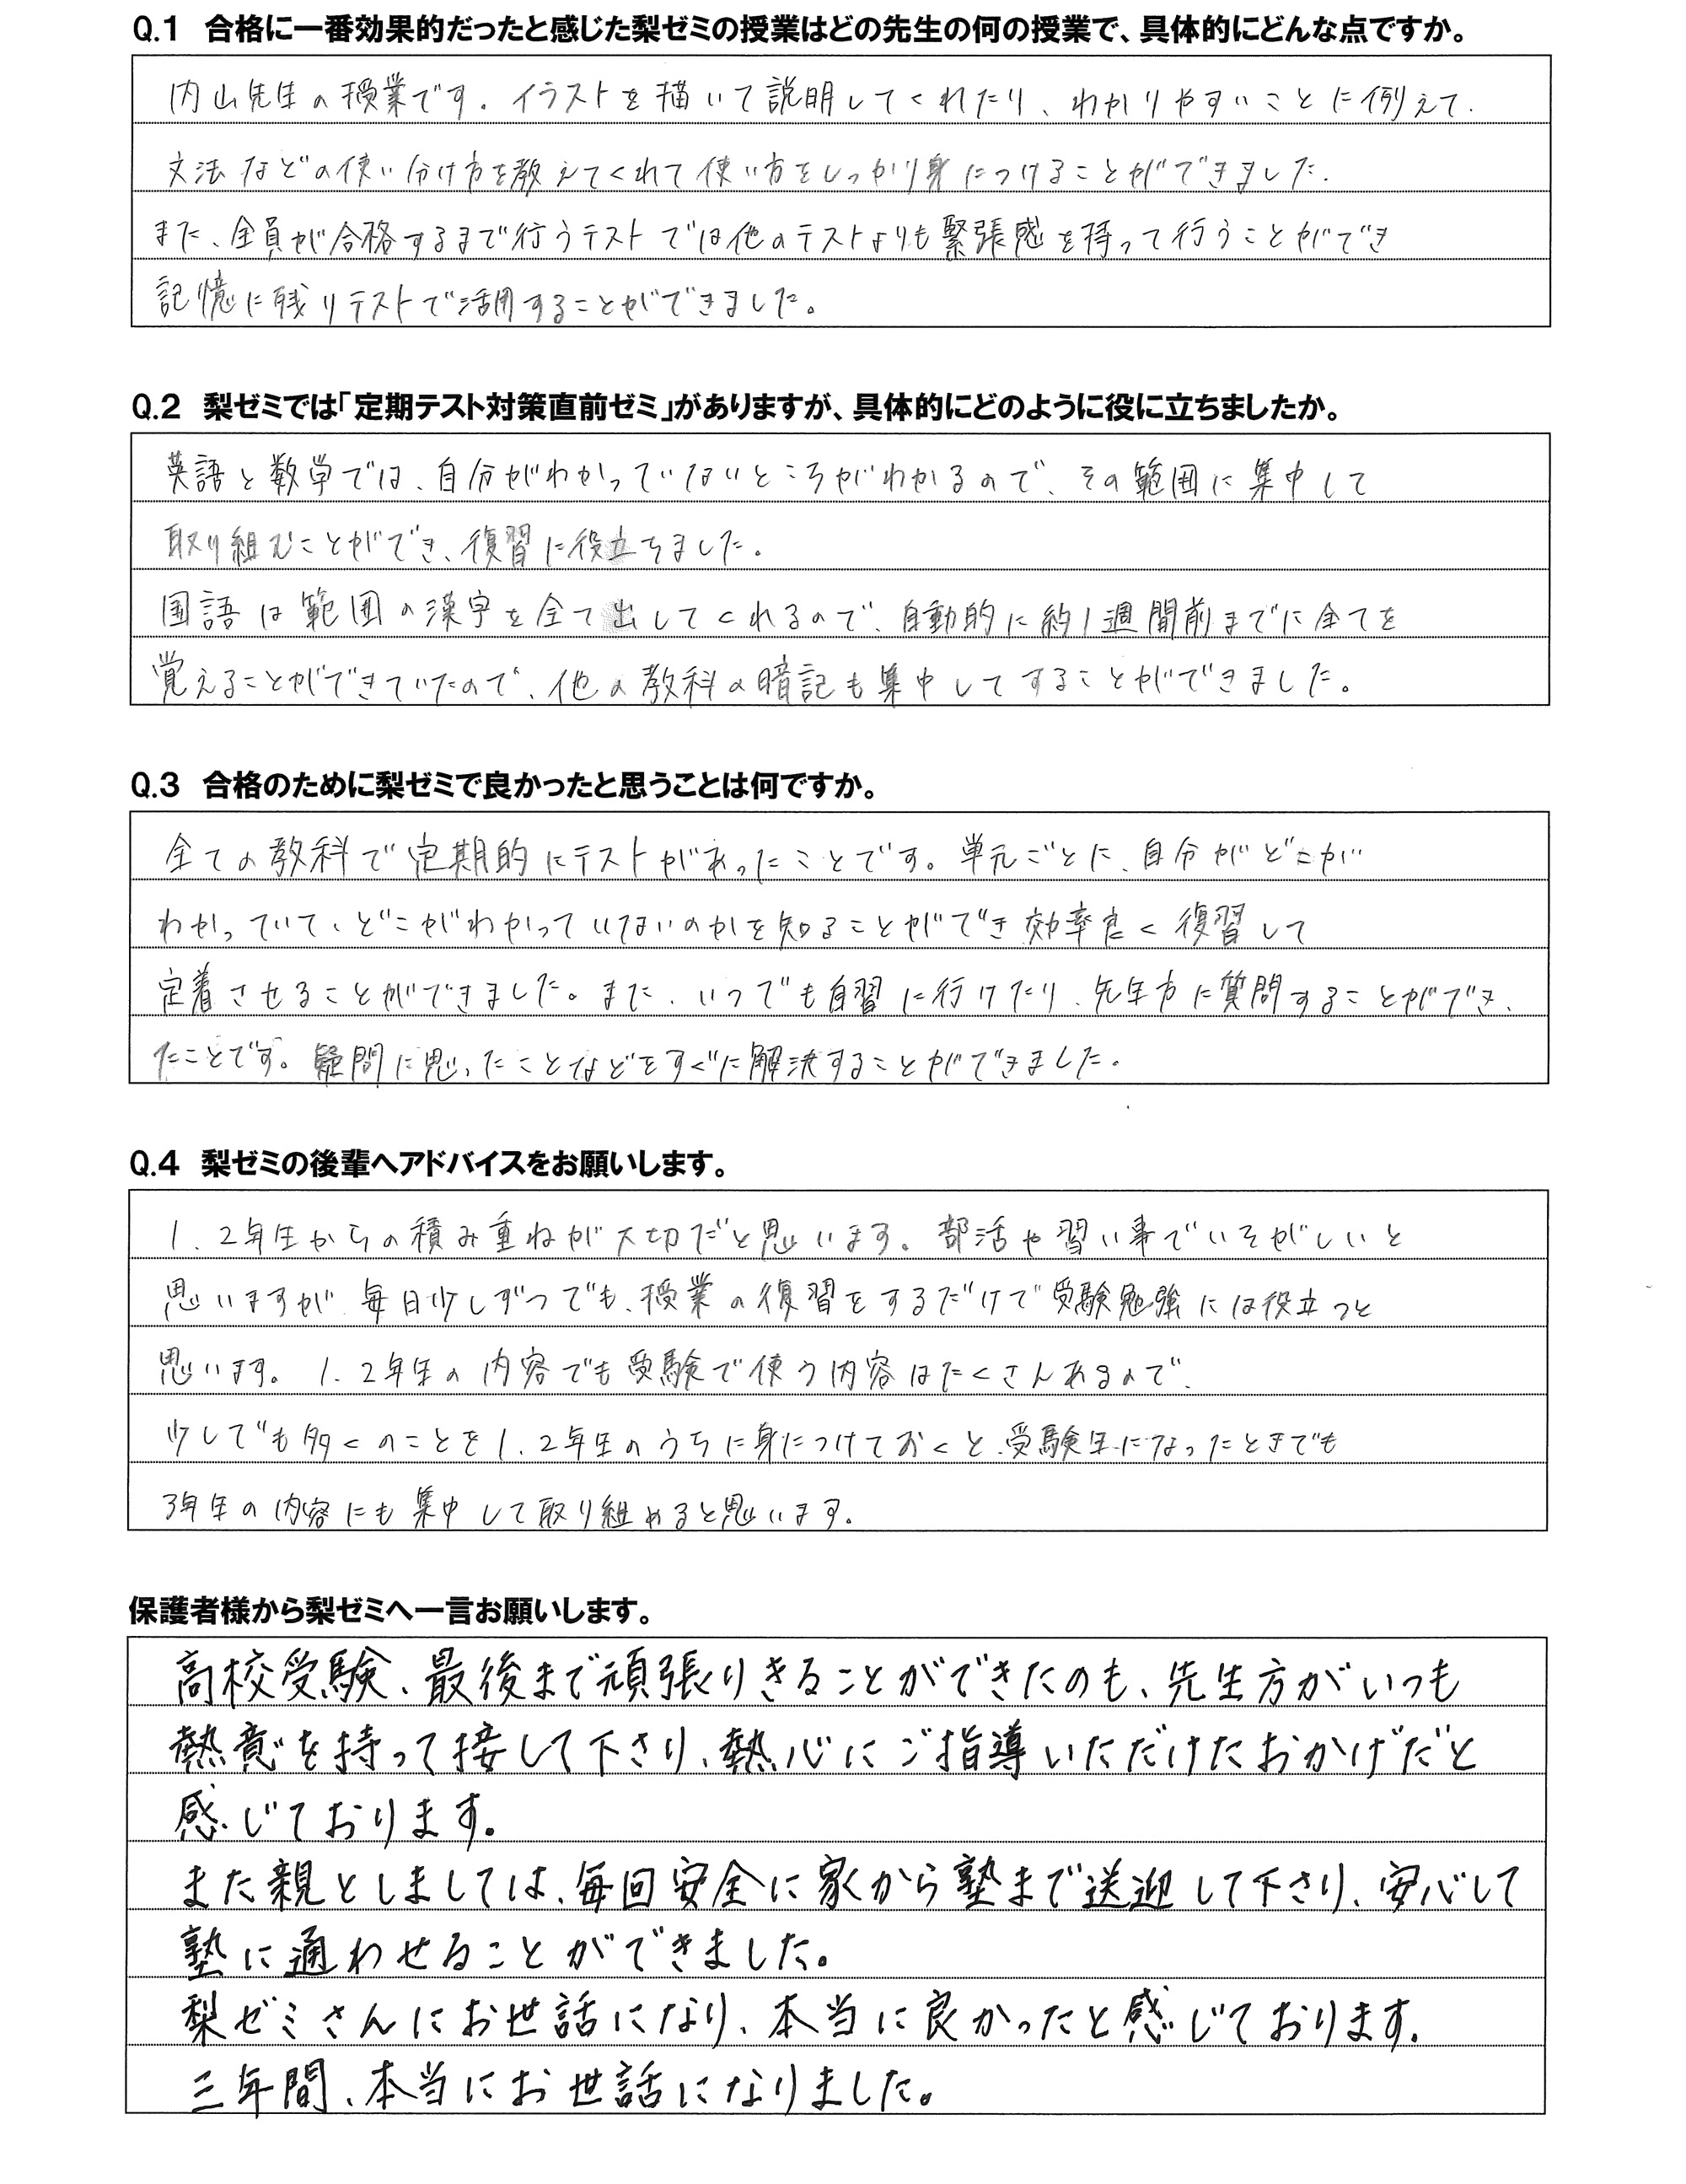 Q.1 合格に一番効果的だったと感じた梨ゼミの授業はどの先生の何の授業で、具体的にどんな点ですか。
内山先生の授業です。イラストを描いて説明してくれたり、わかりやすいことに例えて
文法などの使い分け方を教えてくれて使い方をしっかり身につけることができました。
また、全員が合格するまで行うテストでは他のテストよりも緊張感を持って行うことができ
記憶に残りテストで活用することができました。
Q.2 梨ゼミでは「定期テスト対策直前ゼミ」がありますが、具体的にどのように役に立ちましたか。
英語と数学では、自分がわかっていないところがわかるので、その範囲に集中して
取り組むことができ、復習に役立ちました。
国語は範囲の漢字を全て出してくれるので、自動的に約1週間前までに全てを
覚えることができていたので、他の教科の暗記も集中してすることができました。
Q.3 合格のために梨ゼミで良かったと思うことは何ですか。
全ての教科で定期的にテストがあったことです。単元ごとに、自分がどこが
わかっていて、どこがわかっていないのかを知ることができ効率良く復習して
定着させることができました。また、いつでも自習に行けたり、先生方に質問することができ、
たことです。疑問に思ったことなどをすぐに解決することができました。
Q.4 梨ゼミの後輩へアドバイスをお願いします。
1、2年生からの積み重ねが大切だと思います。部活や習い事でいそがしいと
思いますが、毎日少しずつでも、授業の復習をするだけで受験勉強には役立つと
思います。1、2年生の内容でも受験で使う内容はたくさんあるので、
少しでも多くのことを1、2年生のうちに身につけておくと、受験生になったときでも
3年生の内容にも集中して取り組めると思います。
保護者様から梨ゼミへ一言お願いします。
高校受験、最後まで頑張りきることができたのも、先生方がいつも
熱意を持って接して下さり、熱心にご指導いただけたおかげだと
感じております。
また親としましては、毎回安全に家から塾まで送迎して下さり、安心して
塾に通わせることができました。
梨ゼミさんにお世話になり、本当に良かったと感じております。
三年間、本当にお世話になりました。